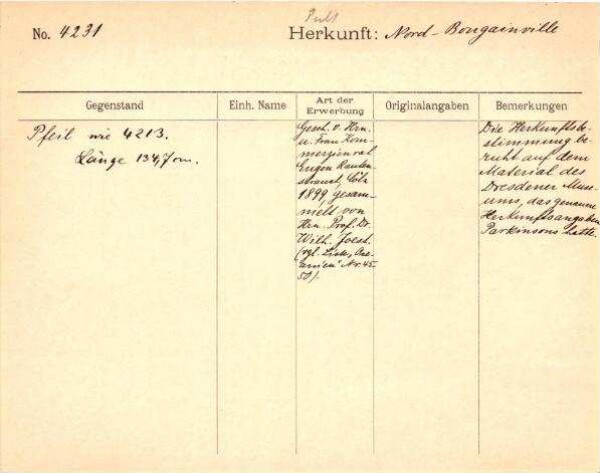 No. 4231
Herkunft: Nord-Bougainville
Gegenstand
Einh. Name
Art der Erwerbung
Originalangaben
Bemerkungen
Pfeil wie 4213.
Länge 134,7 cm.
Gesch. v. Hrn.
u. Frau Kom-
merzienrat
Eugen Rauten-
strauch, Cöln
1899, gesam-
melt von
Hrn. Prof. Dr.
Wilh. Joest.
(vgl. Liste
Nr. 45-
50).
Die Herkunftsbe-
stimmung be-
ruht auf dem
Material des
Dresdener Muse-
ums, das genauere
Herkunftsangaben
Parkinsons